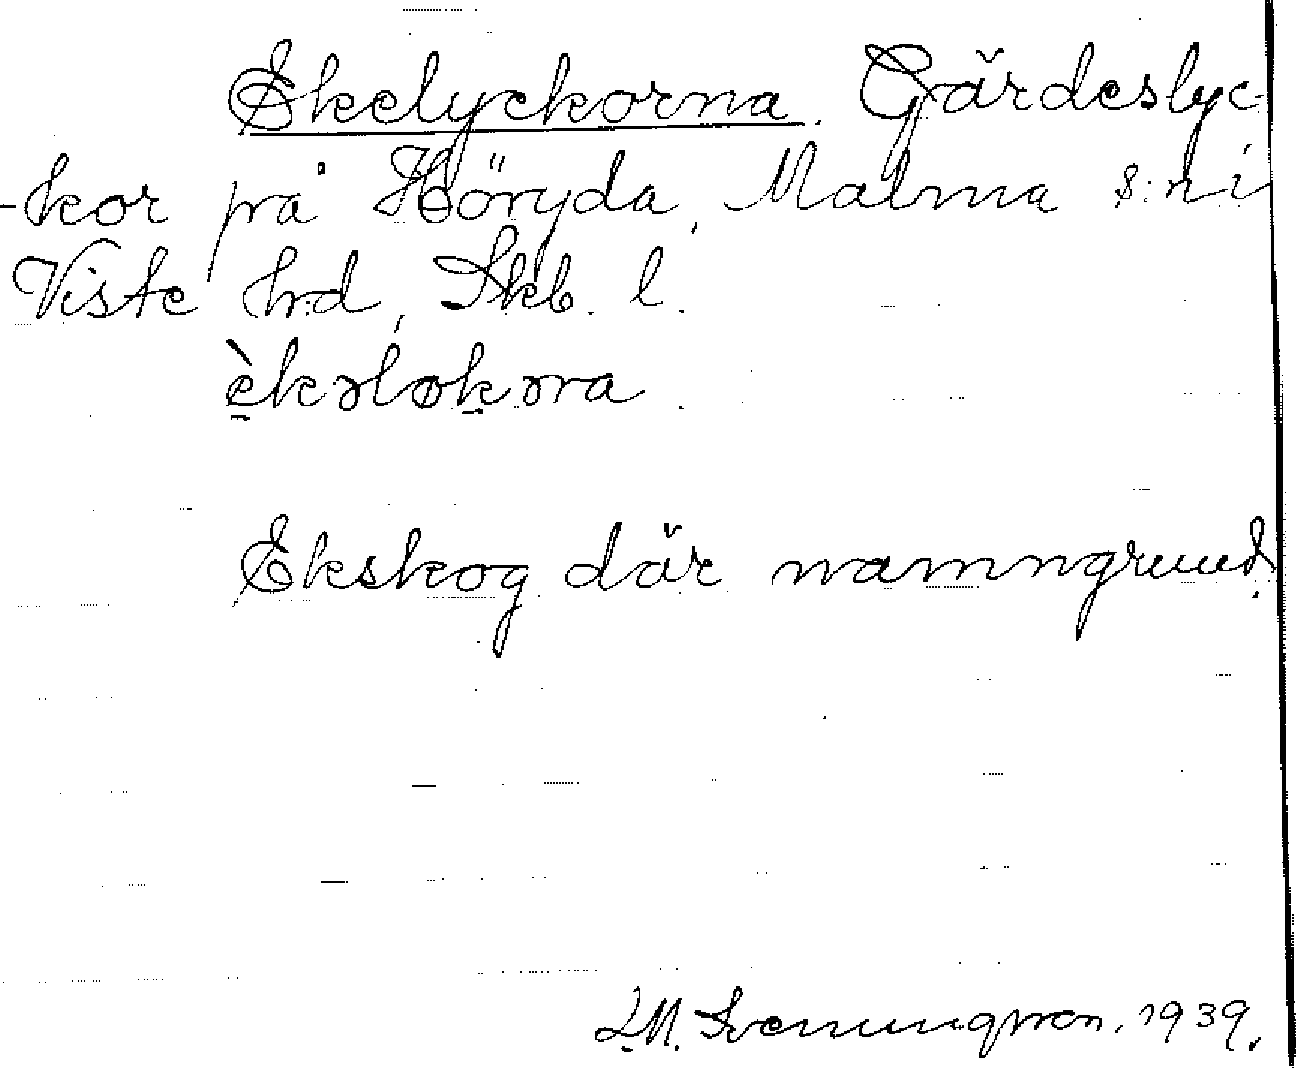 Ekelyckorna. Gärdeslyc-
-kor på Höryda, Malma s:n i
Viste hrd, Skb. l.
èkəløkəra.
Ekskog där namngrund.
L.M. Svenungsson. 1939.